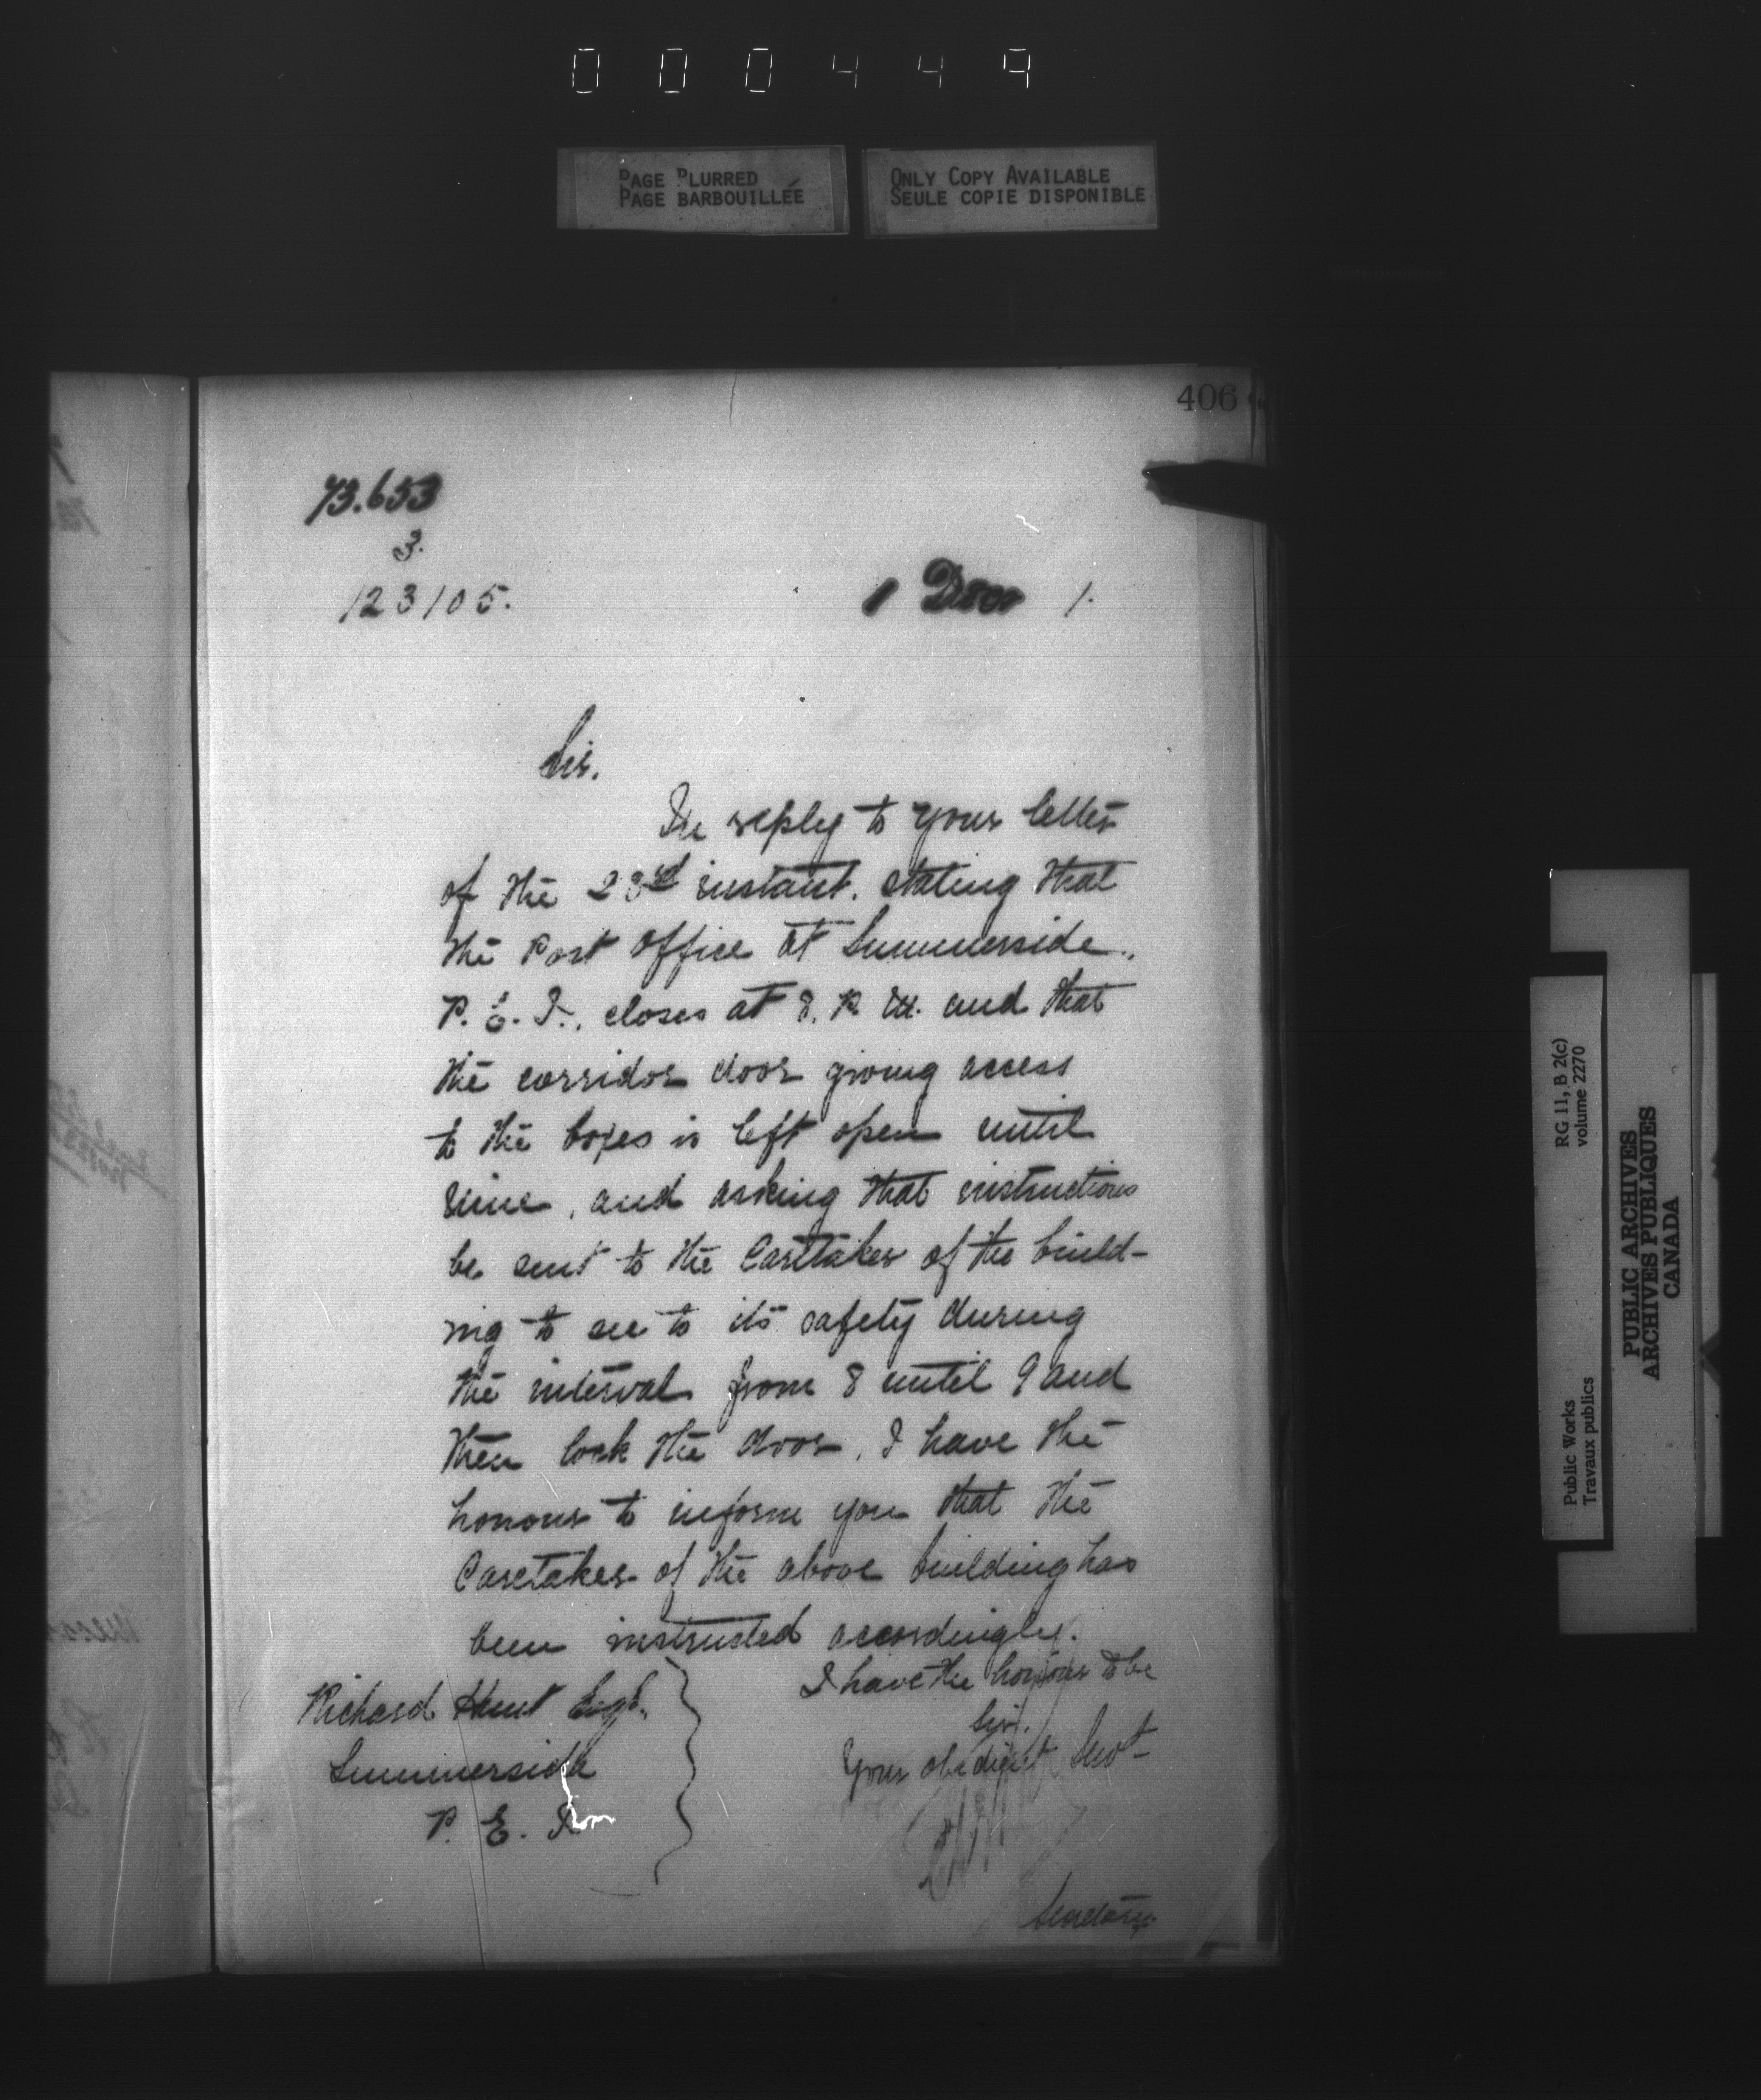 000449
PAGE BLURRED
PAGE BARBOUILLÉE
ONLY COPY AVAILABLE
SEULE COPIE DISPONIBLE
406
73.653
3.
123105.
1 Decr 1.
Sir.
In reply to your letter
of the 23rd instant. stating that
the Post Office at Summerside.,
P. E. I., closes at 8. P. M. and that
the corridor door giving access
to the boxes is left open until
nine, and asking that instructions
be sent to the Caretaker of the build-
ing to see to its safety during
the interval from 8 until 9 and
then lock the door, I have the
honour to inform you that the
Caretaker of the above building has
been instructed accordingly.
I have the honour to be
Sir.
Your obedient Servt
Richard Hunt Esqr.
Summerside
P. E. I
Secretary
RG 11, B 2(c)
volume 2270
Public Works
Travaux publics
PUBLIC ARCHIVES
ARCHIVES PUBLIQUES
CANADA